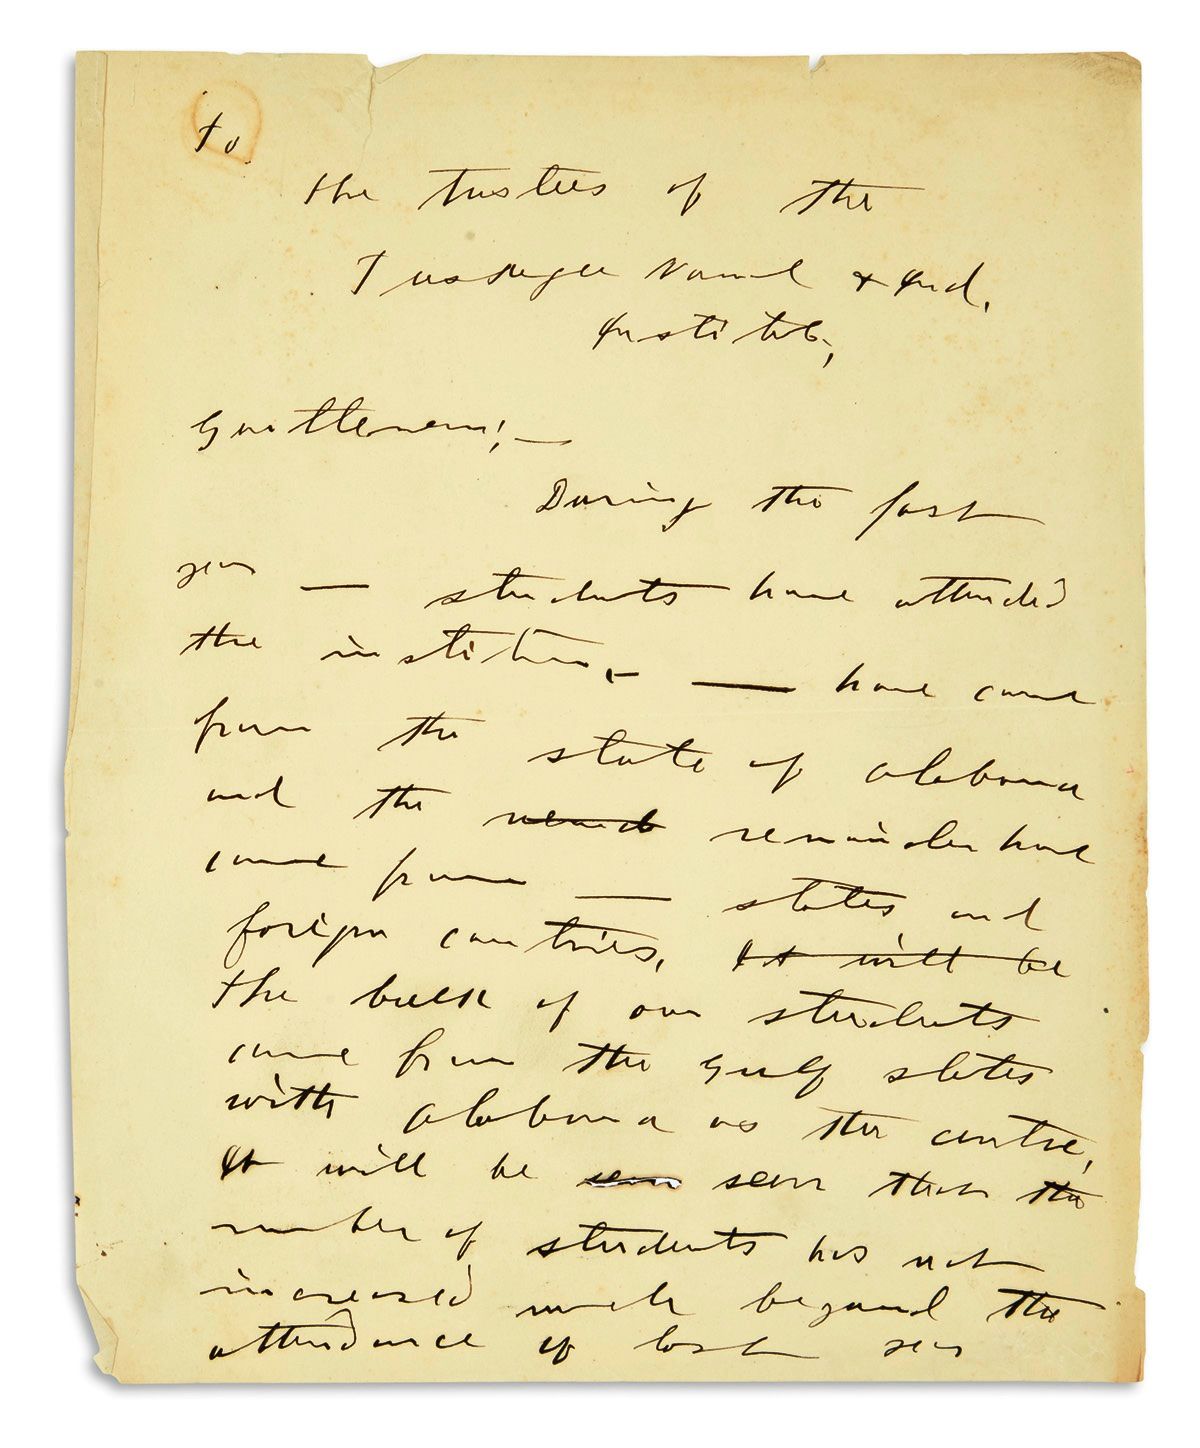 To
the trustees of the
Tuskegee Normal & Ind.
Institute,
Gentlemen; —
During the past
year — students have attended
the institution, — have come
from the state of Alabama
and the remainder have
come from — states and
foreign countries. It will be
the bulk of our students
come from the Gulf states
with Alabama as the centre,
It will be seen seen that the
number of students has not
increased much beyond the
attendance of last year